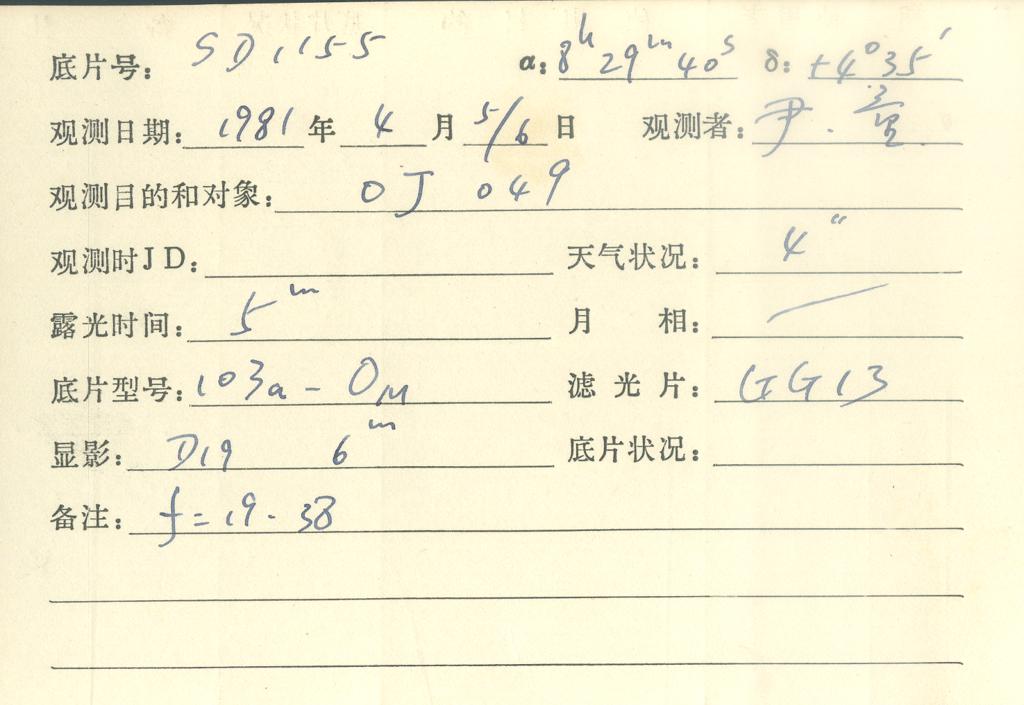 底片号: SD1155 α: 8h 29m 40s δ: +4°35′
观测日期: 1981 年 4 月 5/6 日 观测者: 尹.
观测目的和对象: OJ 049
观测时JD: 天气状况: 4"
露光时间: 5m 月 相: /
底片型号: 103a-OM 滤光片: GG13
显影: D19 6m 底片状况:
备注: f=19.38